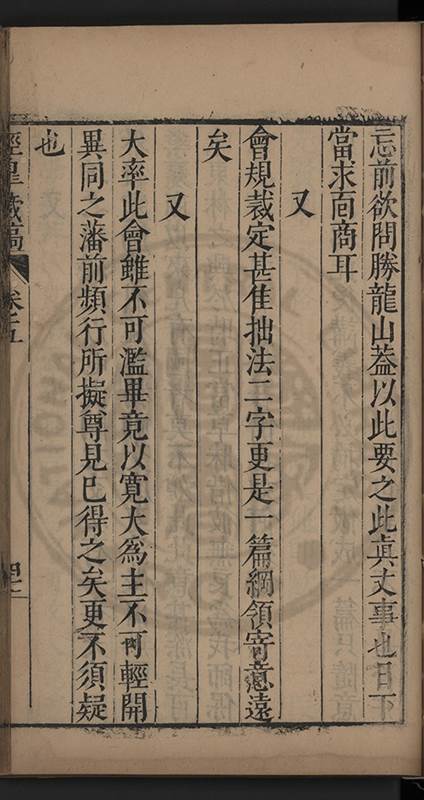 忘前欲問勝龍山蓋以此要之此真丈事也日下
當求面商耳
又
會規裁定甚佳拙法二字更是一篇綱領寄意遠
矣
又
大率此會雖不可濫畢竟以寬大為主不可輕開
異同之藩前頻行所擬尊見已得之矣更不須疑
也
涇皐藏稿
卷之五